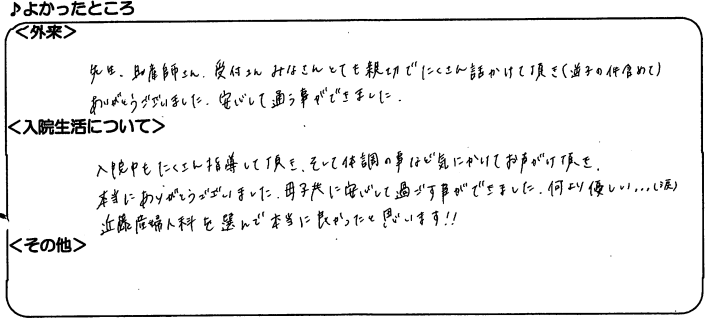 ♪よかったところ
<外来>
先生、助産師さん、受付さんみなさんとても親切でたくさん話かけて頂き(逆子の件含めて)
ありがとうございました。安心して通う事ができました。
<入院生活について>
入院中もたくさん指導して頂き、そして体調の事など気にかけてお声がけ頂き、
本当にありがとうございました。母子共に安心して過ごす事ができました。何より優しい…(涙)
近藤産婦人科を選んで本当に良かったと思います!!
<その他>